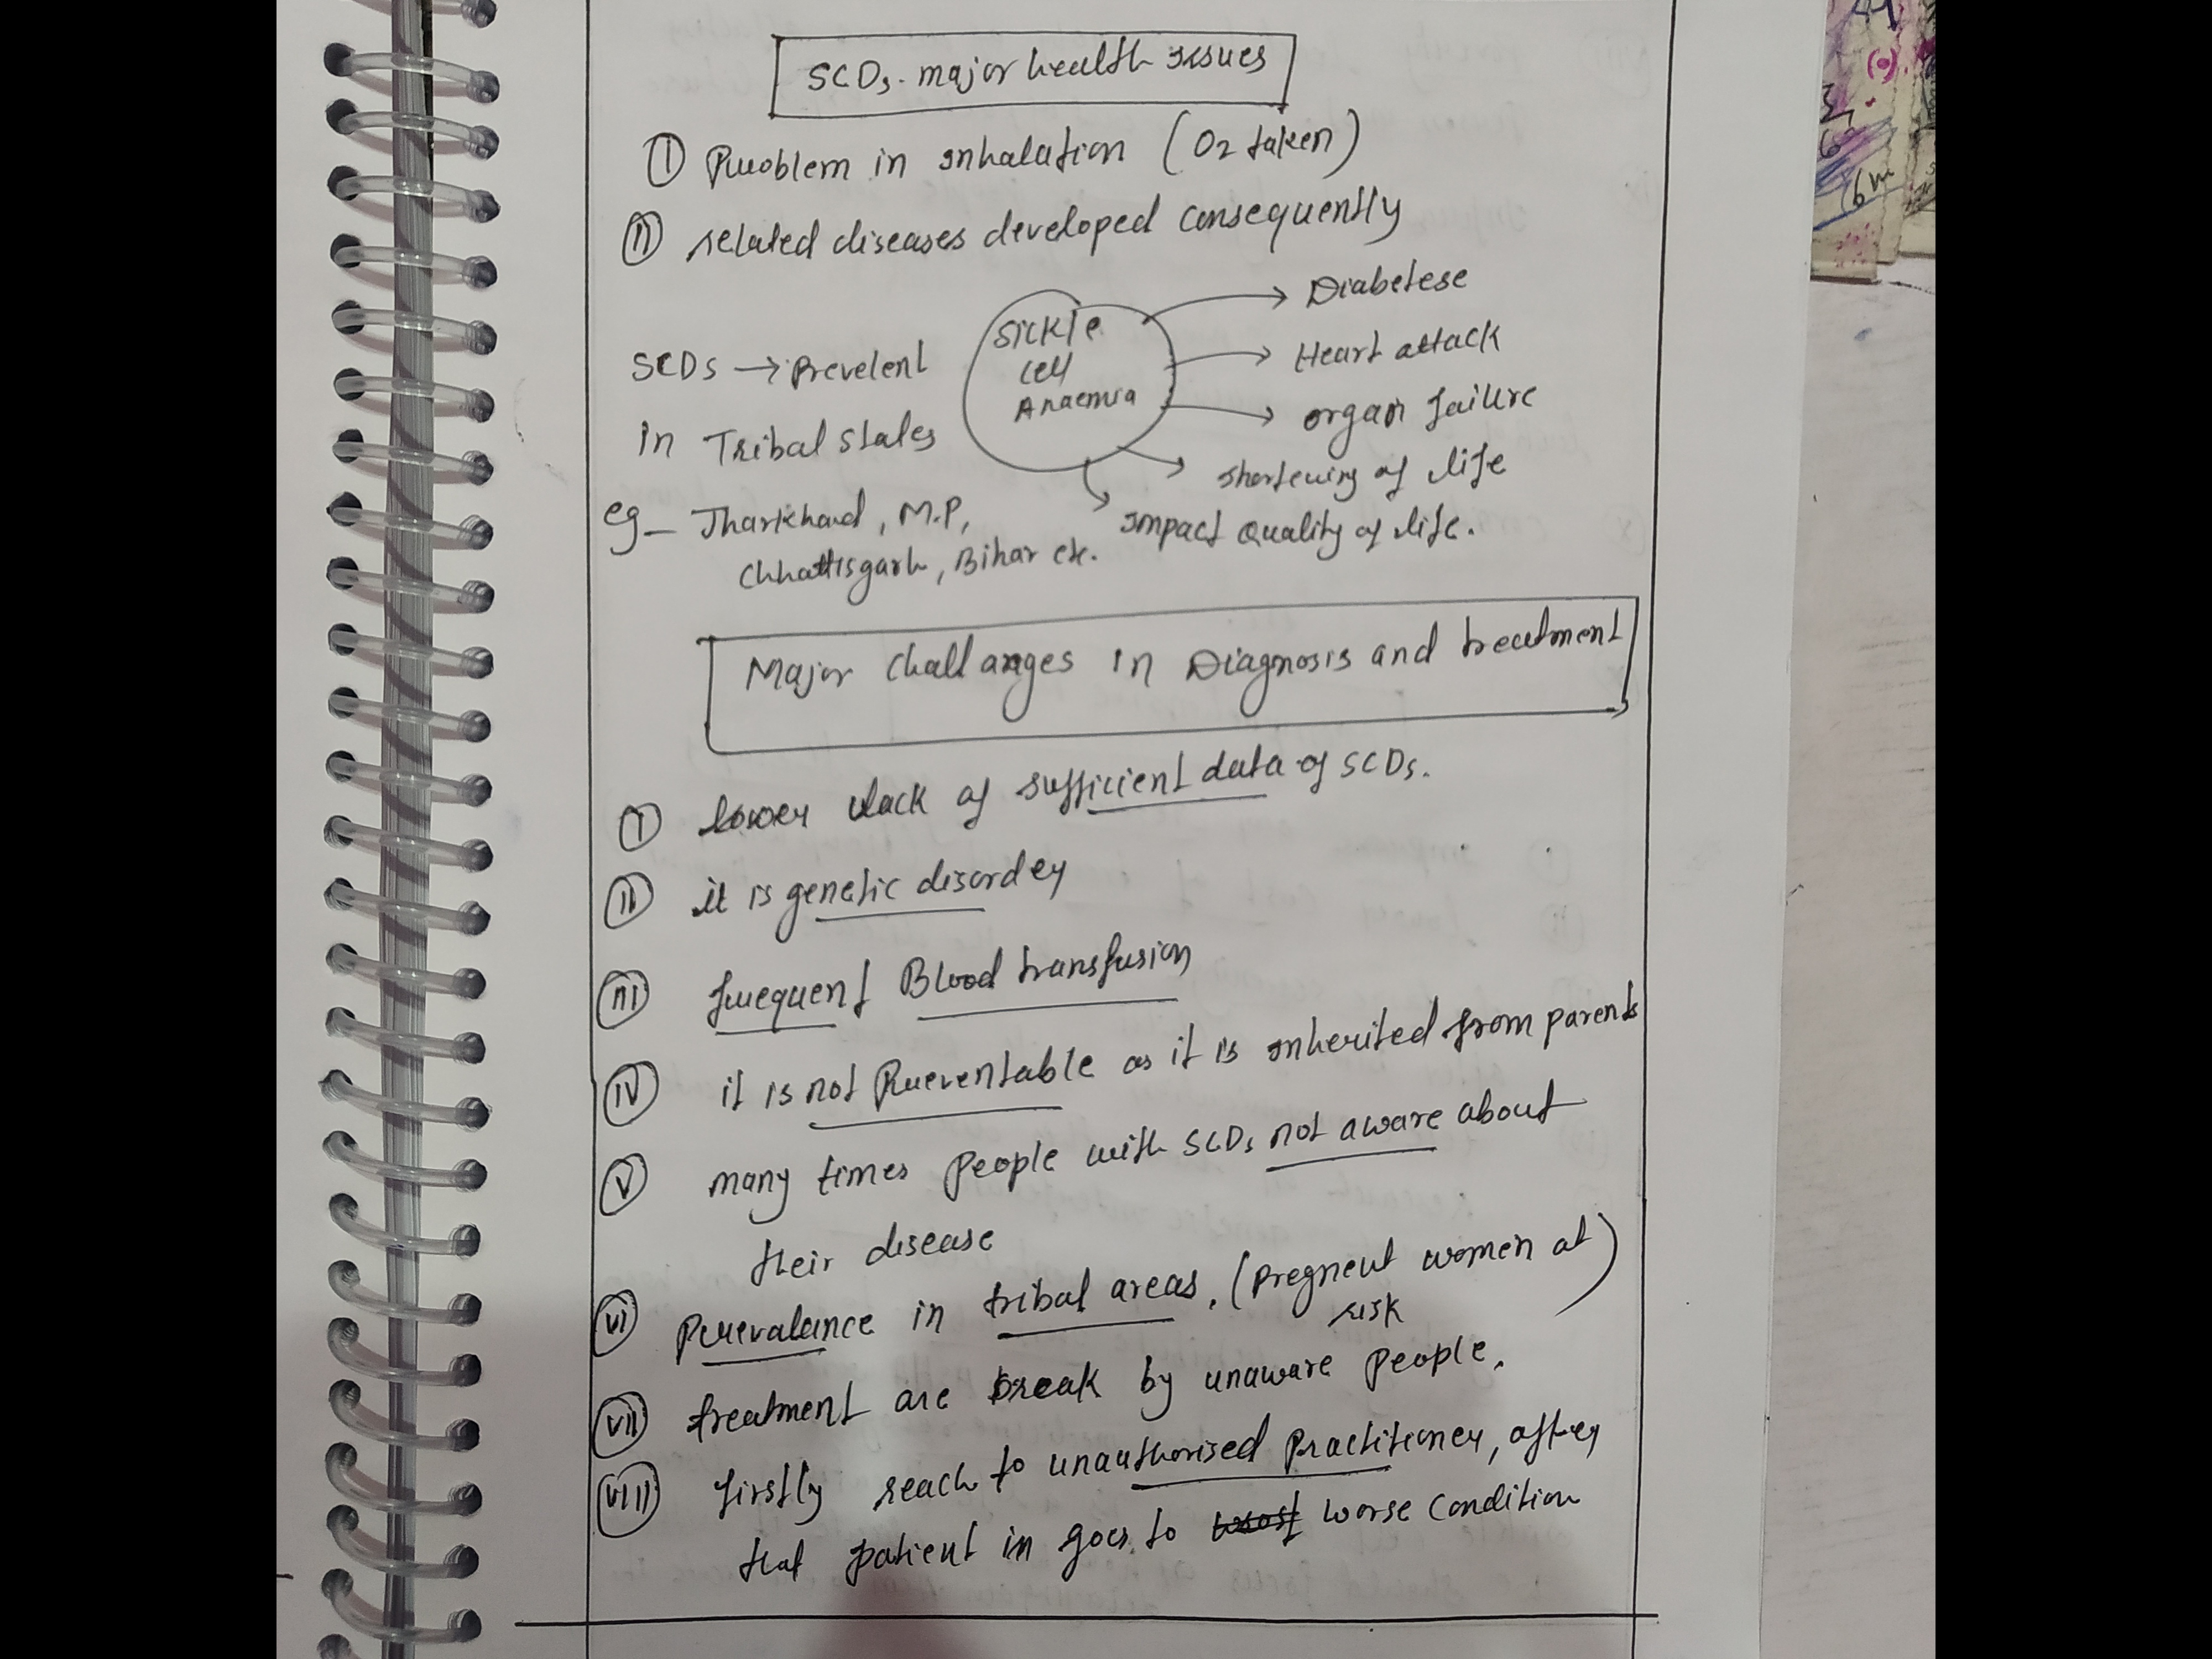 SCDs - major health issues
(I) Problem in inhalation (O2 taken)
(II) related diseases developed consequently
Sickle
cell
Anaemia
Diabetese
Heart attack
organ failure
shortening of life
impact Quality of life.
SCDs → Prevelent
in Tribal states
eg - Jharkhand, M.P,
Chhattisgarh, Bihar etc.
Major challanges in Diagnosis and treatment
(I) lower lack of sufficient data of SCDs.
(II) it is genetic disorder
(III) frequent Blood transfusion
(IV) it is not Preventable as it is inherited from parents
(V) many times people with SCDs not aware about
their disease
(VI) Prevalance in tribal areas. (Pregnent women at
risk)
(VII) treatment are break by unaware people.
(VIII) firstly reach to unauthorised practitioner, after
that patient in goes to worst worse condition